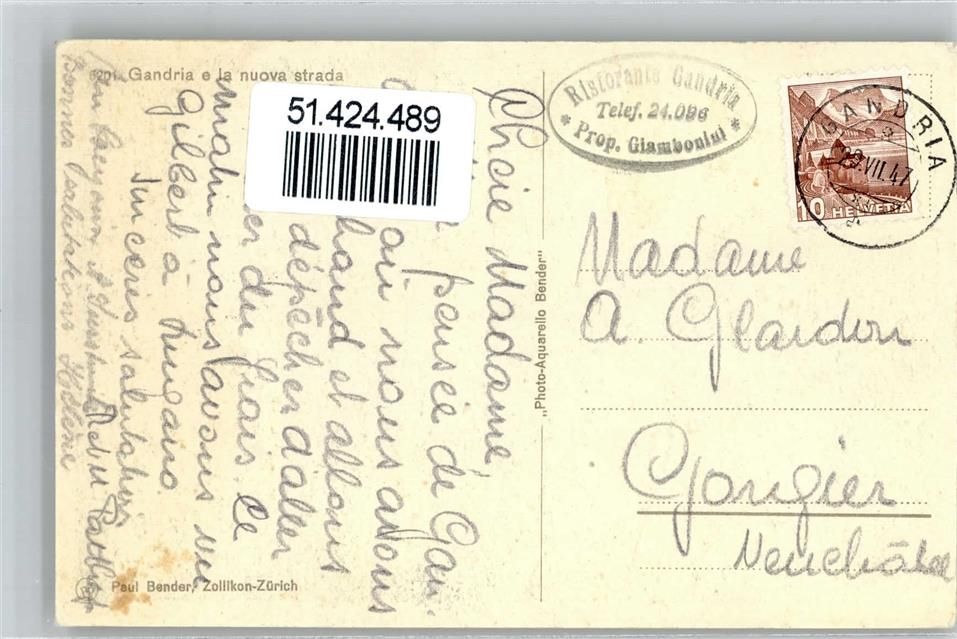 6201 Gandria e la nuova strada
51.424.489
Ristorante Gandria
Telef. 24.096
* Prop. Giambonini *
GANDRIA
29.VII.47
10 HELVETIA
Chère Madame,
pensée de Gan-
où nous avons
chaud et allons
dépêcher d'aller
du frais. Ce
matin nous avons vu
Gilbert à Lugano
Sincères salutations
Bonnes salutations Hélène
„Photo-Aquarello Bender"
Madame
A. Glardon
Gorgier
Neuchâtel
Paul Bender, Zollikon-Zürich